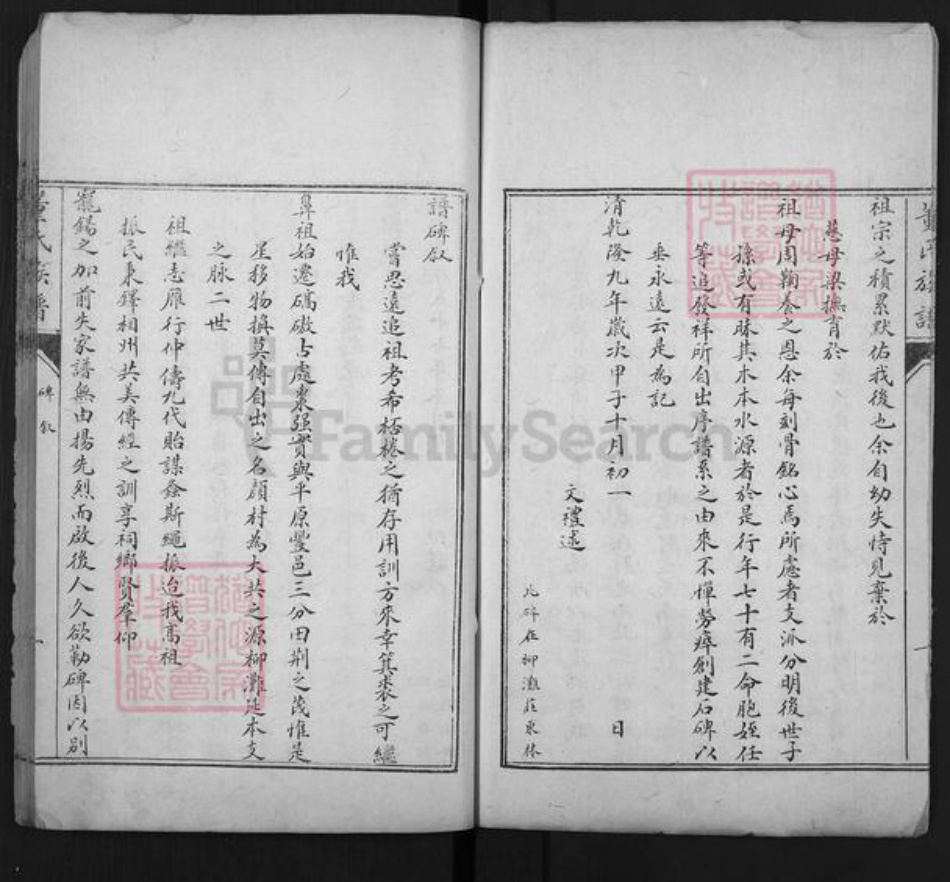 董氏族譜
祖宗之積累默佑我後也余自幼失恃見棄於
慈母梁撫育於
祖母周鞠養之恩余每刻骨銘心焉所慮者支派分明後世子
孫或有昧其木本水源者於是行年七十有二命胞姪任
等追發祥所自出序譜系之由來不憚勞瘁創建石碑以
垂永遠云是為記
清乾隆九年歲次甲子十月初一 日
文禮述
此碑在柳灘莊東林
譜碑叙
嘗思遠追祖考希栝棬之猶存用訓方來幸箕裘之可繼
惟我
鼻祖始遷碻磝占處棗强實與平原豐邑三分田荆之茂惟是
星移物換莫傳自出之名顔村為大共之源柳灘延本支
之脉二世
祖繼志雁行仲儔九代貽謀螽斯繩振迨我高祖
振民秉鐸相州共美傳經之訓享祠鄉賢羣仰
寵錫之加前失家譜無由揚先烈而啟後人久欲勒碑因以別
氏族譜
碑叙
一
FamilySearch